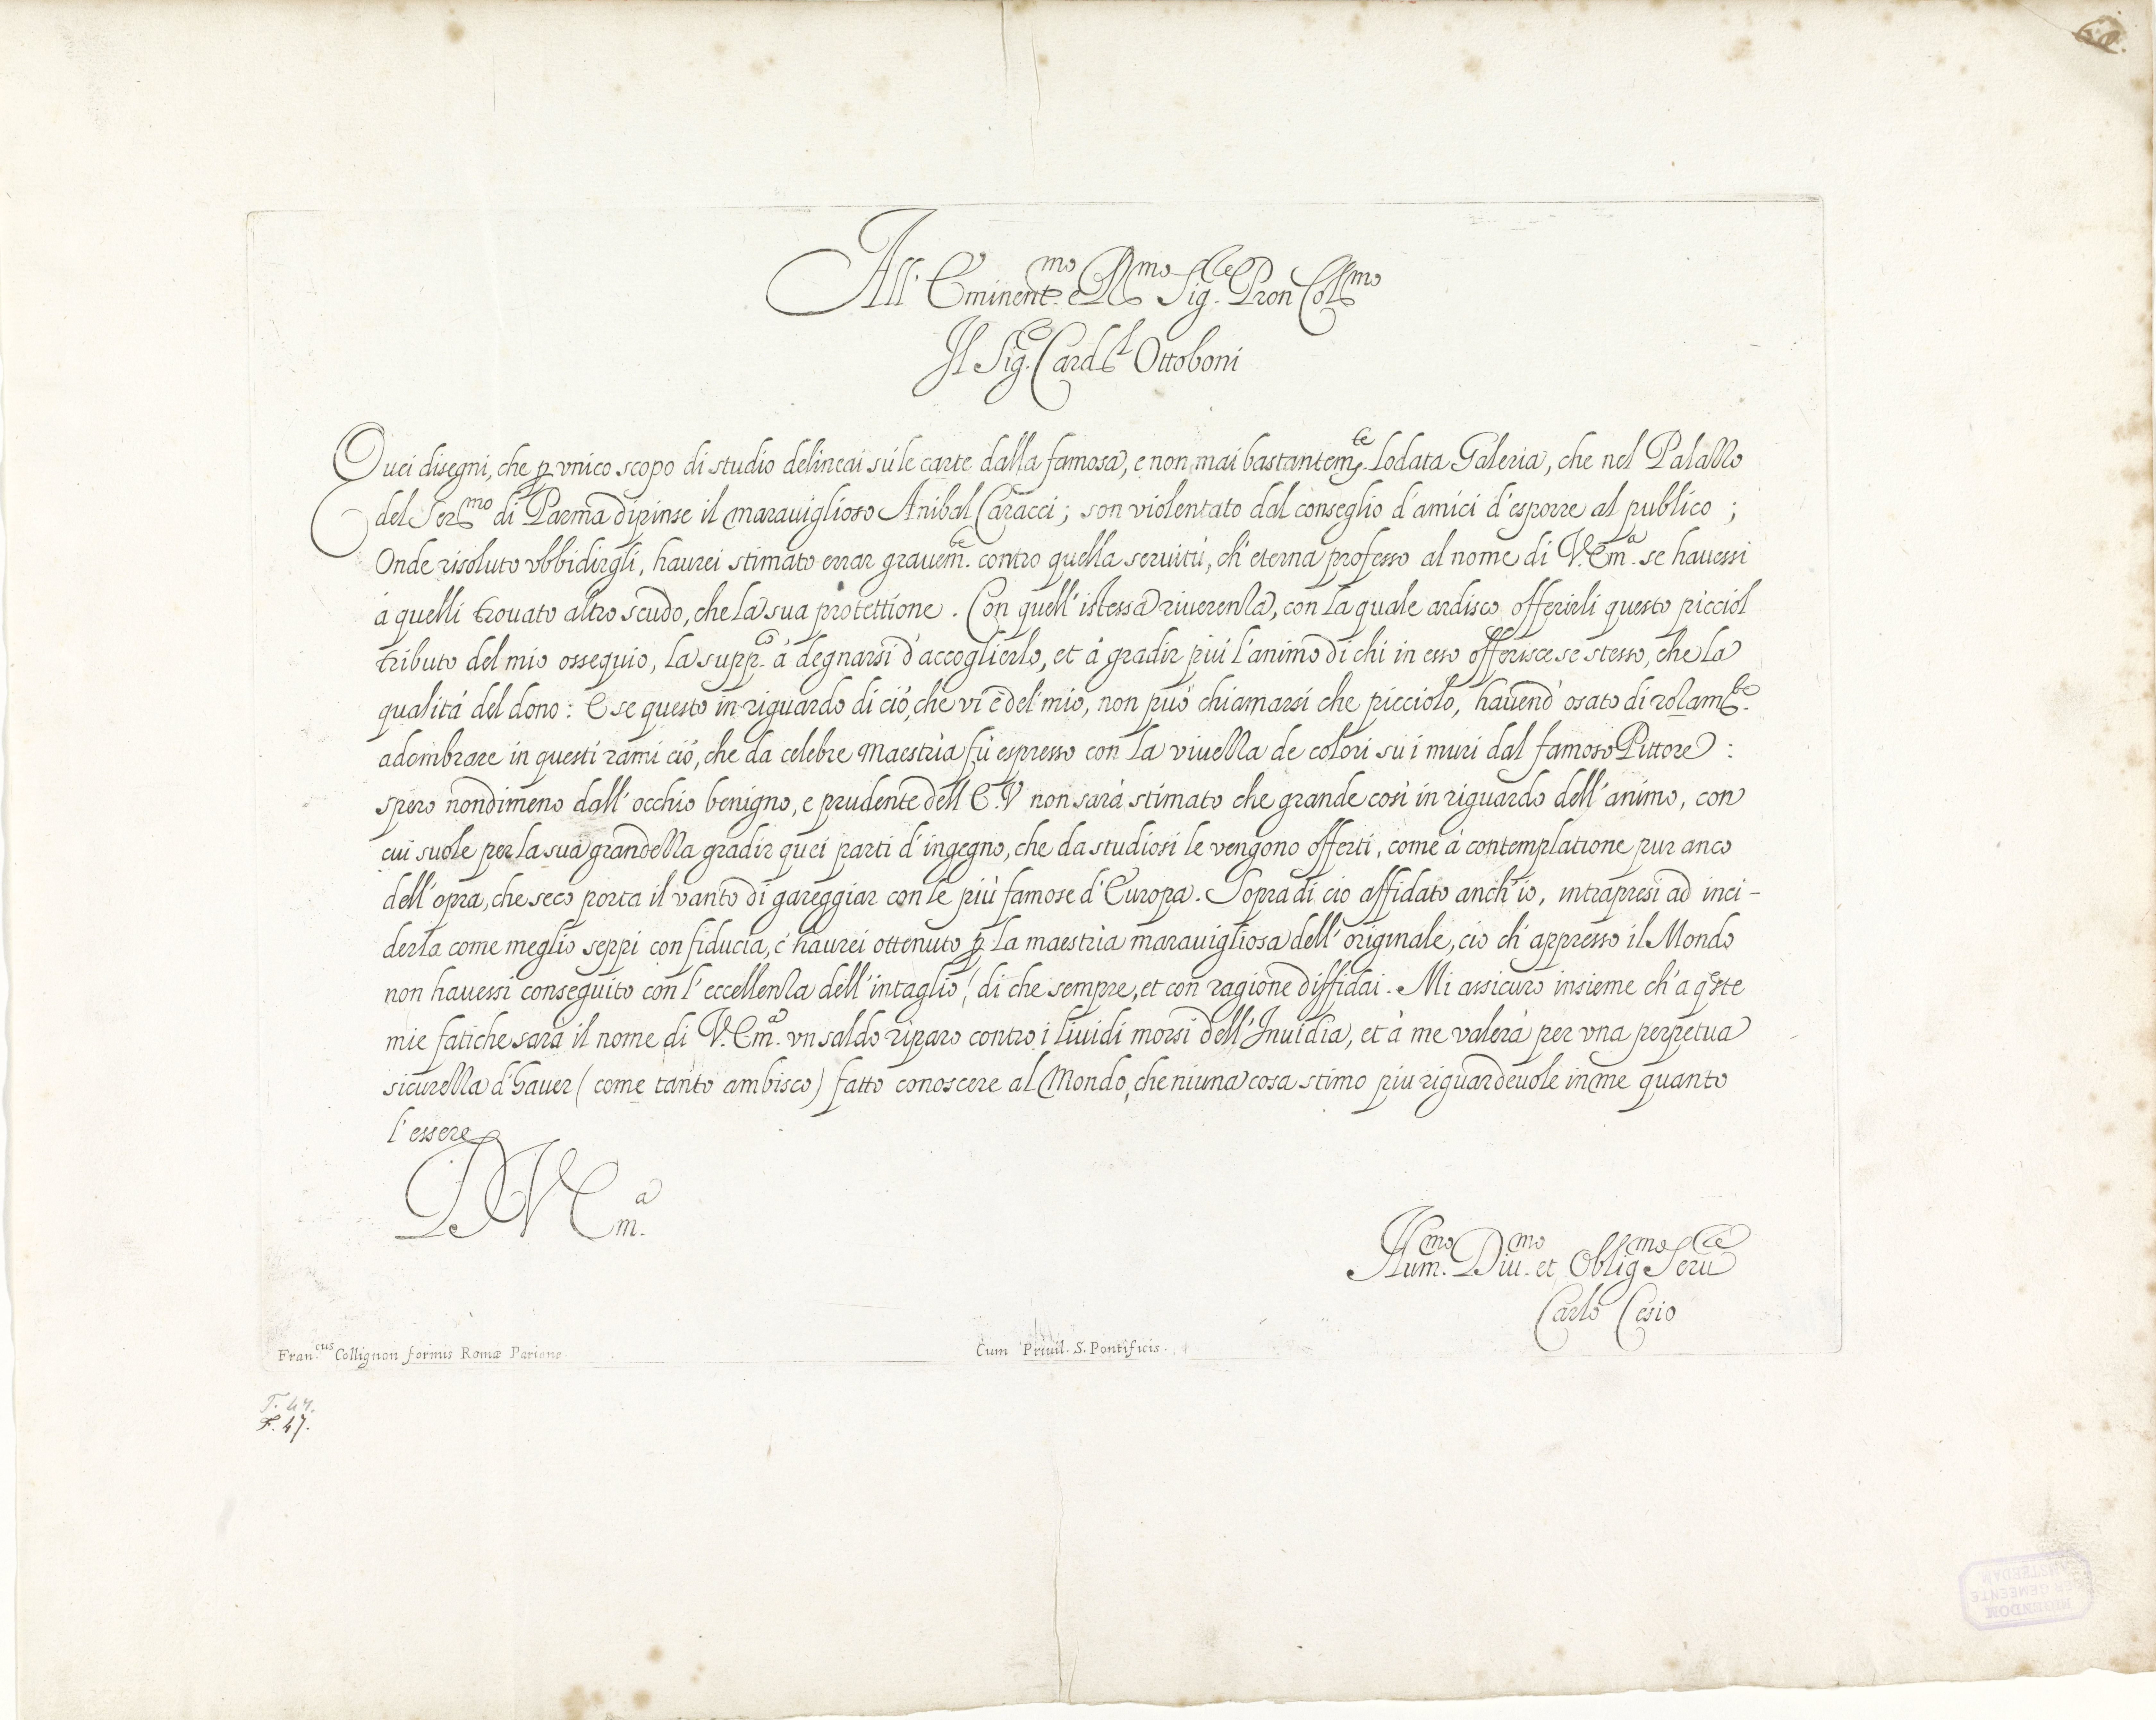 60.
All' Eminent.mo e R.mo Sig.re Pron Coll.mo
Il Sig.e Card.l Ottoboni
Quei disegni, che p vnico scopo di studio delineai sú le carte dalla famosa, e non mai bastantem.te lodata Galeria, che nel Palazzo
del Ser.mo di Parma dipinse il marauiglioso Anibal Caracci; son violentato dal conseglio d'amici d'esporre al publico;
Onde risoluto vbbidirgli, haurei stimato errar grauem.te contro quella seruitù, ch'eterna professo al nome di V. Em.a se hauessi
á quelli trouato altro scudo, che la sua protettione. Con quell'istessa riuerenza, con la quale ardisco offerirli questo picciol
tributo del mio ossequio, la supp.co á degnarsi d'accoglierlo, et á gradir piú l'animo di chi in esso offerisce se stesso, che la
qualitá del dono: E se questo in riguardo di ció, che vi è del mio, non può chiamarsi che picciolo, hauend' osato di rozam.te
adombrare in questi rami ció, che da celebre maestria fù espresso con la viuezza de colori su i muri dal famoso Pittore:
spero nondimeno dall'occhio benigno, e prudente dell E.V non sarà stimato che grande così in riguardo dell'animo, con
cui suole per la sua grandezza gradir quei parti d'ingegno, che da studiosi le vengono offerti, come à contemplatione pur anco
dell'opra, che seco porta il vanto di gareggiar con le più famose d'Europa. Sopra di cio affidato anch'io, intrapresi ad inci-
derla come meglio seppi con fiducia, c'haurei ottenuto p la maestria marauigliosa dell'originale, cio ch'appresso il Mondo
non hauessi conseguito con l'eccellenza dell'intaglio; di che sempre, et con ragione diffidai. Mi assicuro insieme ch'a q'ste
mie fatiche sarà il nome di V. Em.a vn saldo riparo contro i liuidi morsi dell'Inuidia, et à me valerà per vna perpetua
sicurezza d'hauer (come tanto ambisco) fatto conoscere al Mondo, che niuna cosa stimo piu riguardeuole in me quanto
l'essere
D V Em.a
Hum.mo Diu.mo et Oblig.mo Seru.re
Carlo Cesio
Fran.cus Collignon formis Romæ Parione
Cum Priuil. S. Pontificis.
T. 47.
F. 47.